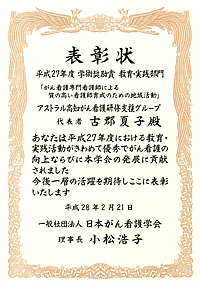 表彰状
平成27年度 学術奨励賞 教育・実践部門
「がん看護専門看護師による
質の高い看護師育成のための地域活動」
アストラル高知がん看護研修支援グループ
代表者 古郡夏子殿
あなたは平成27年度における教育・
実践活動がきわめて優秀でがん看護の
向上ならびに本学会の発展に貢献され
ました
今後一層の活躍を期待しここに表彰
いたします
平成28年2月21日
一般社団法人 日本がん看護学会
理事長 小松浩子